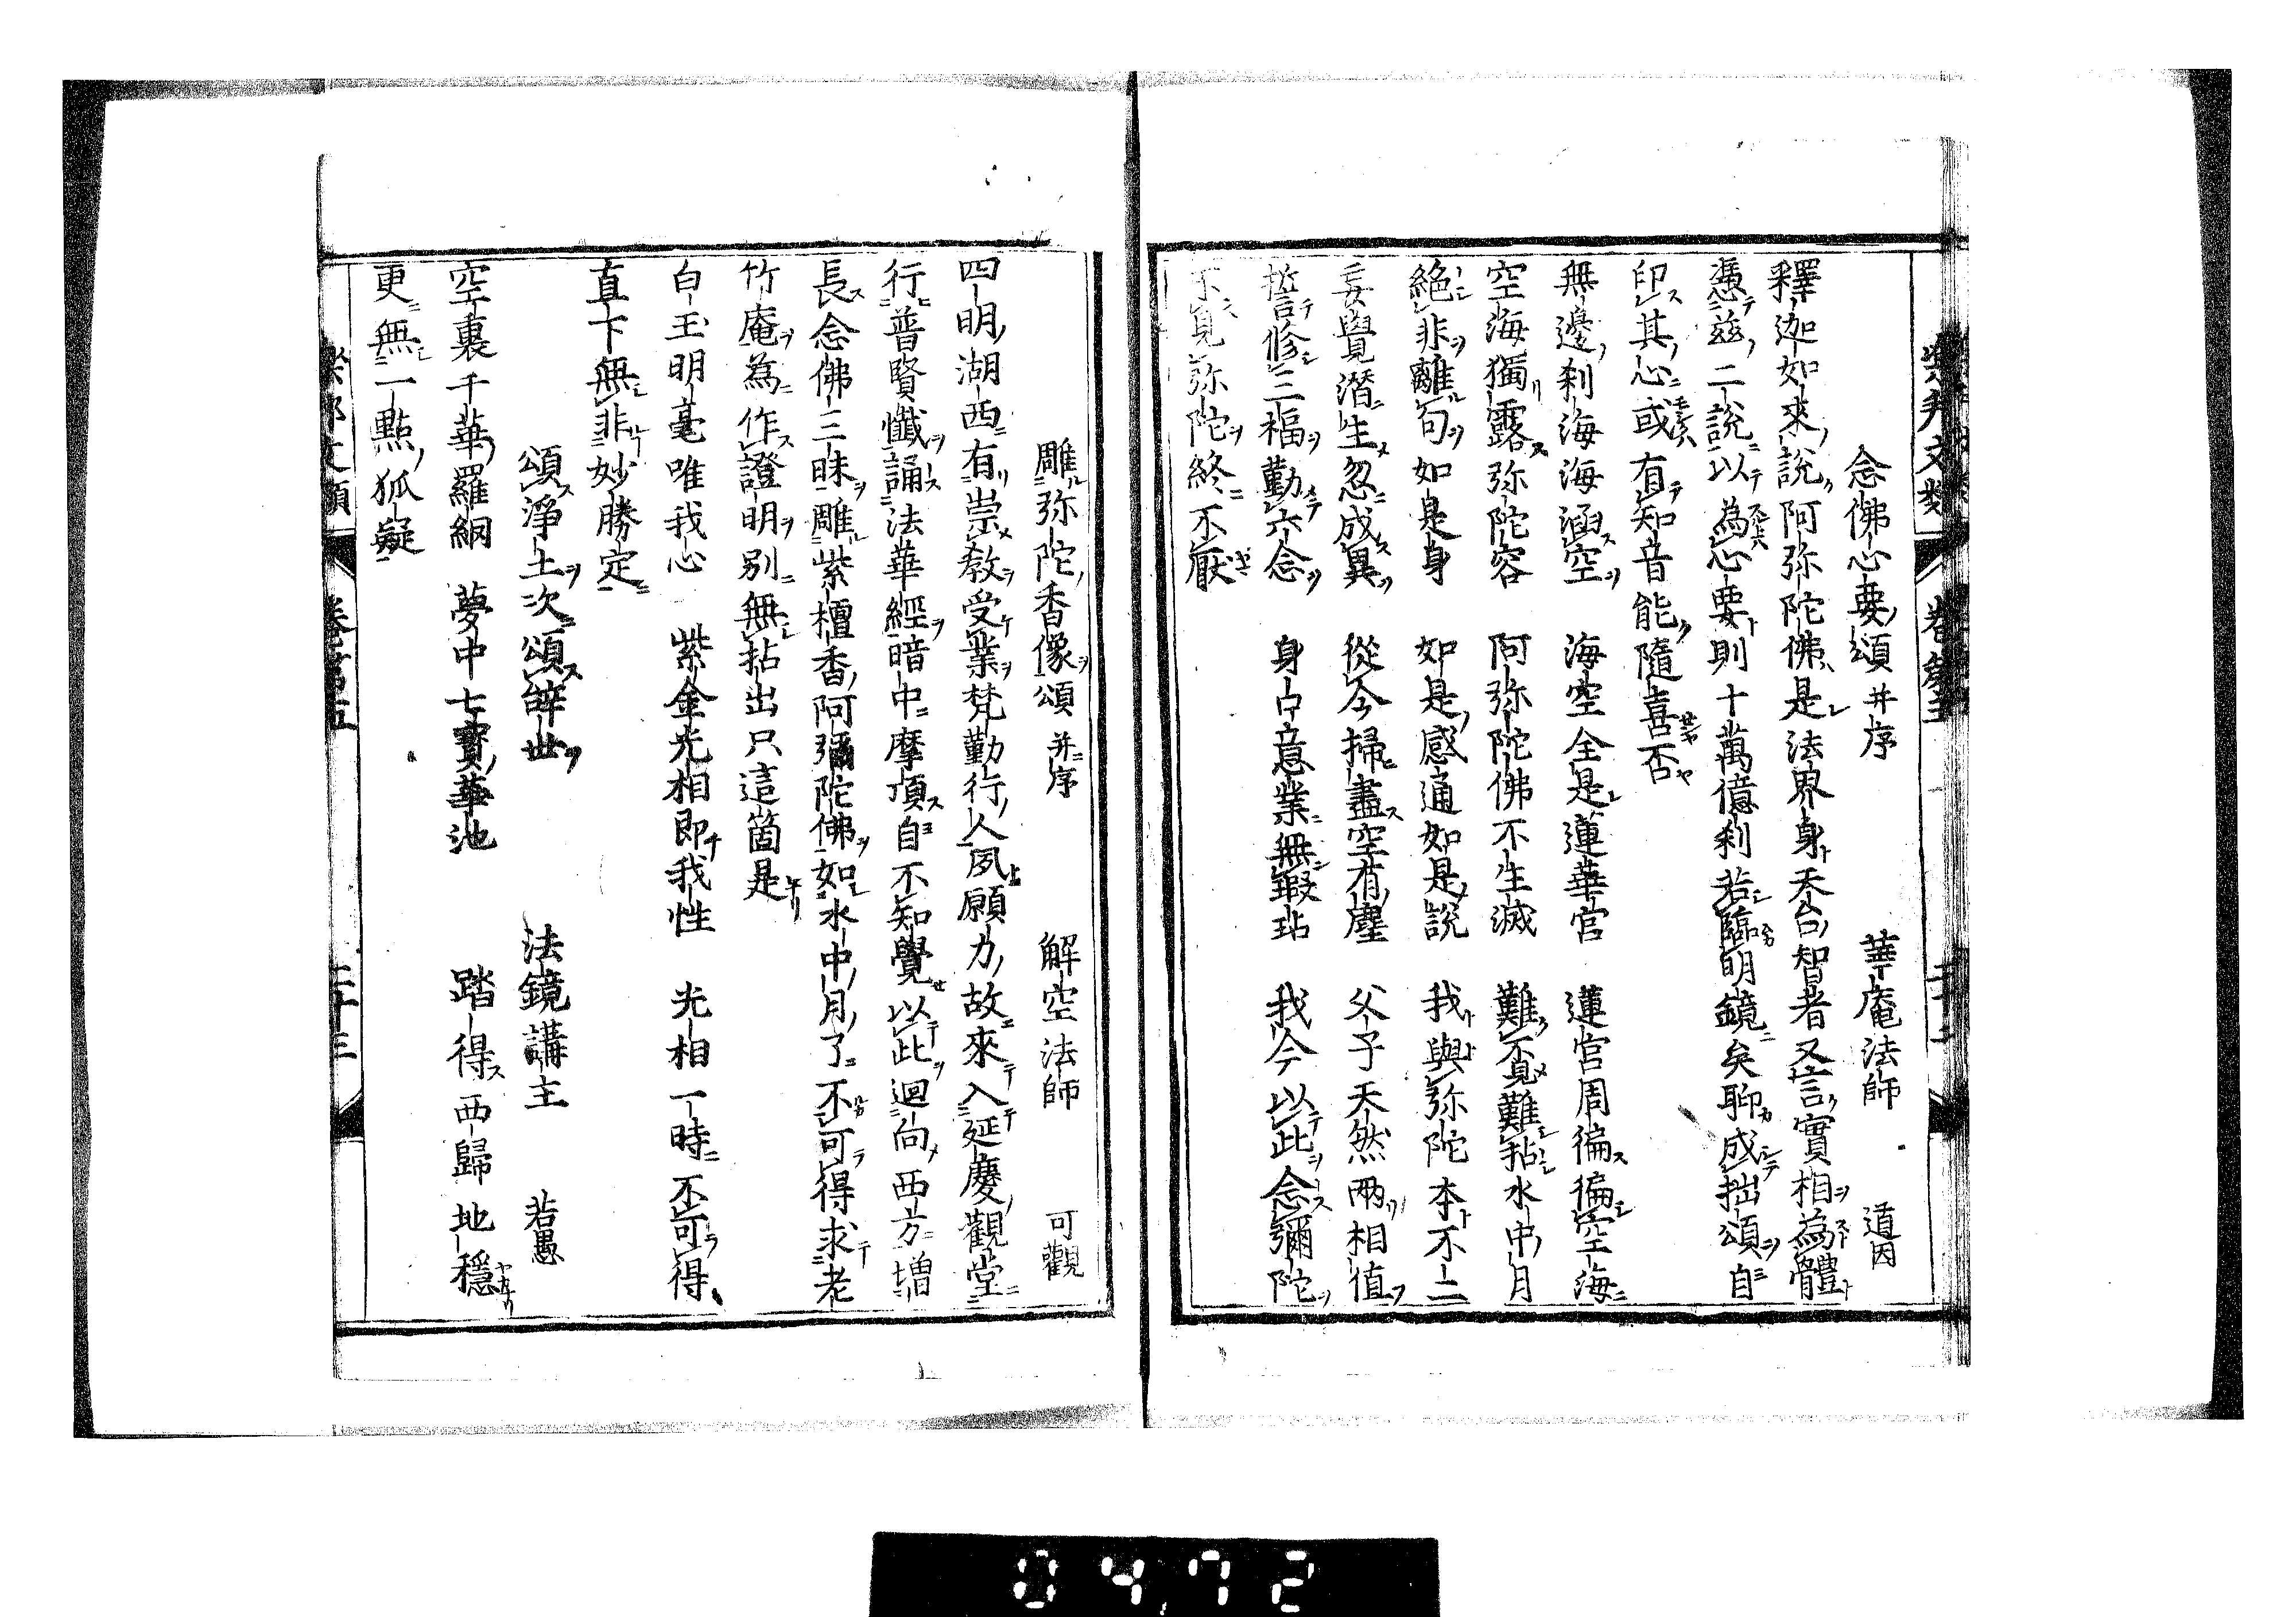 樂邦文類 卷第五
念佛心要頌 并序 草庵法師 道因
釋迦如來說阿弥陀佛是法界身天台智者又言實相為體
憑茲二說以為心要則十萬億刹若臨明鏡矣聊成拙頌自
印其心或有知音能隨喜否
無邊刹海海涵空 海空全是蓮華宮 蓮宮周徧徧空海
空海獨露弥陀容 阿弥陀佛不生滅 難覓難拈水中月
絕非離句如是身 如是感通如是說 我與弥陀本不二
妄覺潛生忽成異 從今掃盡空有塵 父子天然兩相值
誓修三福勤六念 身口意業無瑕玷 我今以此念彌陀
不覓弥陀終不厭
雕弥陀香像頌 并序 解空法師 可觀
四明湖西有崇教受業梵勤行人夙願力故來入延慶觀堂
行普賢懺誦法華經暗中摩頂自不知覺以此迴向西方增
長念佛三昧雕紫檀香阿彌陀佛如水中月了不可得求老
竹庵為作證明別無拈出只這箇是
白玉明毫唯我心 紫金光相即我性 光相一時不可得
直下無非妙勝定
頌淨土次頌辭世 法鏡講主 若愚
空裏千華羅網 夢中七寶華池 踏得西歸地穩
更無一點狐疑
樂邦文類 卷第五 二十三
0472